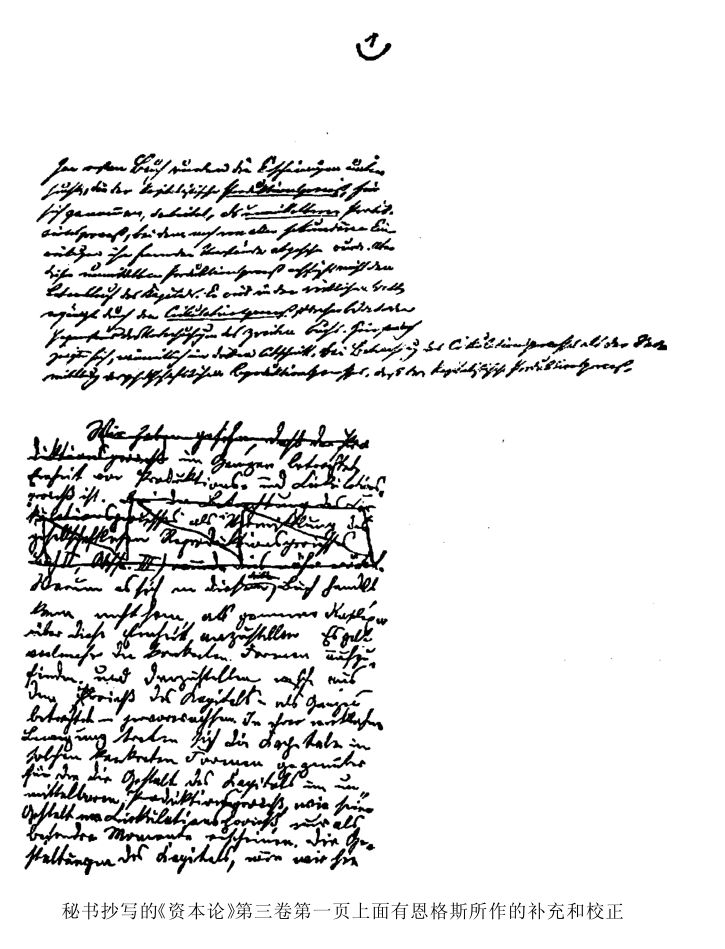 1
Im ersten Buch wurden die Erscheinungen unter-
sucht, die der kapitalistische Produktionsprozeß, für
sich genommen, darbietet, als unmittelbarer Produk-
tionsprozeß, bei dem noch von allen sekundären Ein-
wirkungen ihm fremder Umstände abgesehn wurde. Aber
dieser unmittelbare Produktionsprozeß erschöpft nicht den
Lebenslauf des Kapitals. Er wird in der wirklichen Welt
ergänzt durch den Cirkulationsprozeß, dieser bildete den
Gegenstand der Untersuchungen des zweiten Buchs. Hier
zeigte sich, namentlich im dritten Abschnitt, bei Betrachtung des Cirkulationsprozesses als der Ver-
mittlung des gesellschaftlichen Reproduktionsprozesses, daß der kapitalistische Produktionsprozeß,
Wir haben gesehn, daß der Pro
duktionsprozeß im Ganzen betrachtet
Einheit von Produktions- und Cirkulations-
prozeß ist. Bei der Betrachtung des Cir-
kulationsprozesses als Vermittlung des
gesellschaftlichen Reproduktionsprozesses
Buch II, Absch. III) wurde dies näher
Worum es sich in diesem Buch handelt
kann nicht sein, allgemeine Reflexionen
über diese Einheit anzustellen. Es gilt
vielmehr die konkreten Formen aufzu-
finden und darzustellen welche aus
dem Prozeß des Kapitals - als Ganzes
betrachtet - hervorwachsen. In ihrer wirklichen
Bewegung treten sich die Kapitale in
solchen konkreten Formen gegenüber
für die die Gestalt des Kapitals im un-
mittelbaren Produktionsprozeß, wie seine
Gestalt im Cirkulationsprozeß nur als
besondre Momente erscheinen. Die Ge-
staltungen des Kapitals, wie wir sie
秘书抄写的《资本论》第三卷第一页上面有恩格斯所作的补充和校正